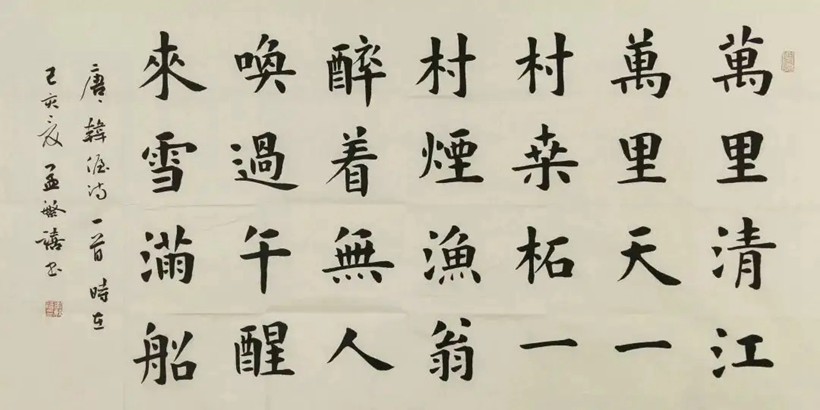 萬里清江
萬里天一
村桒柘一
村煙漁翁
醉着無人
喚過午醒
來雪滿船
唐韓偓詩一首時在
己亥夏孟繁禧書